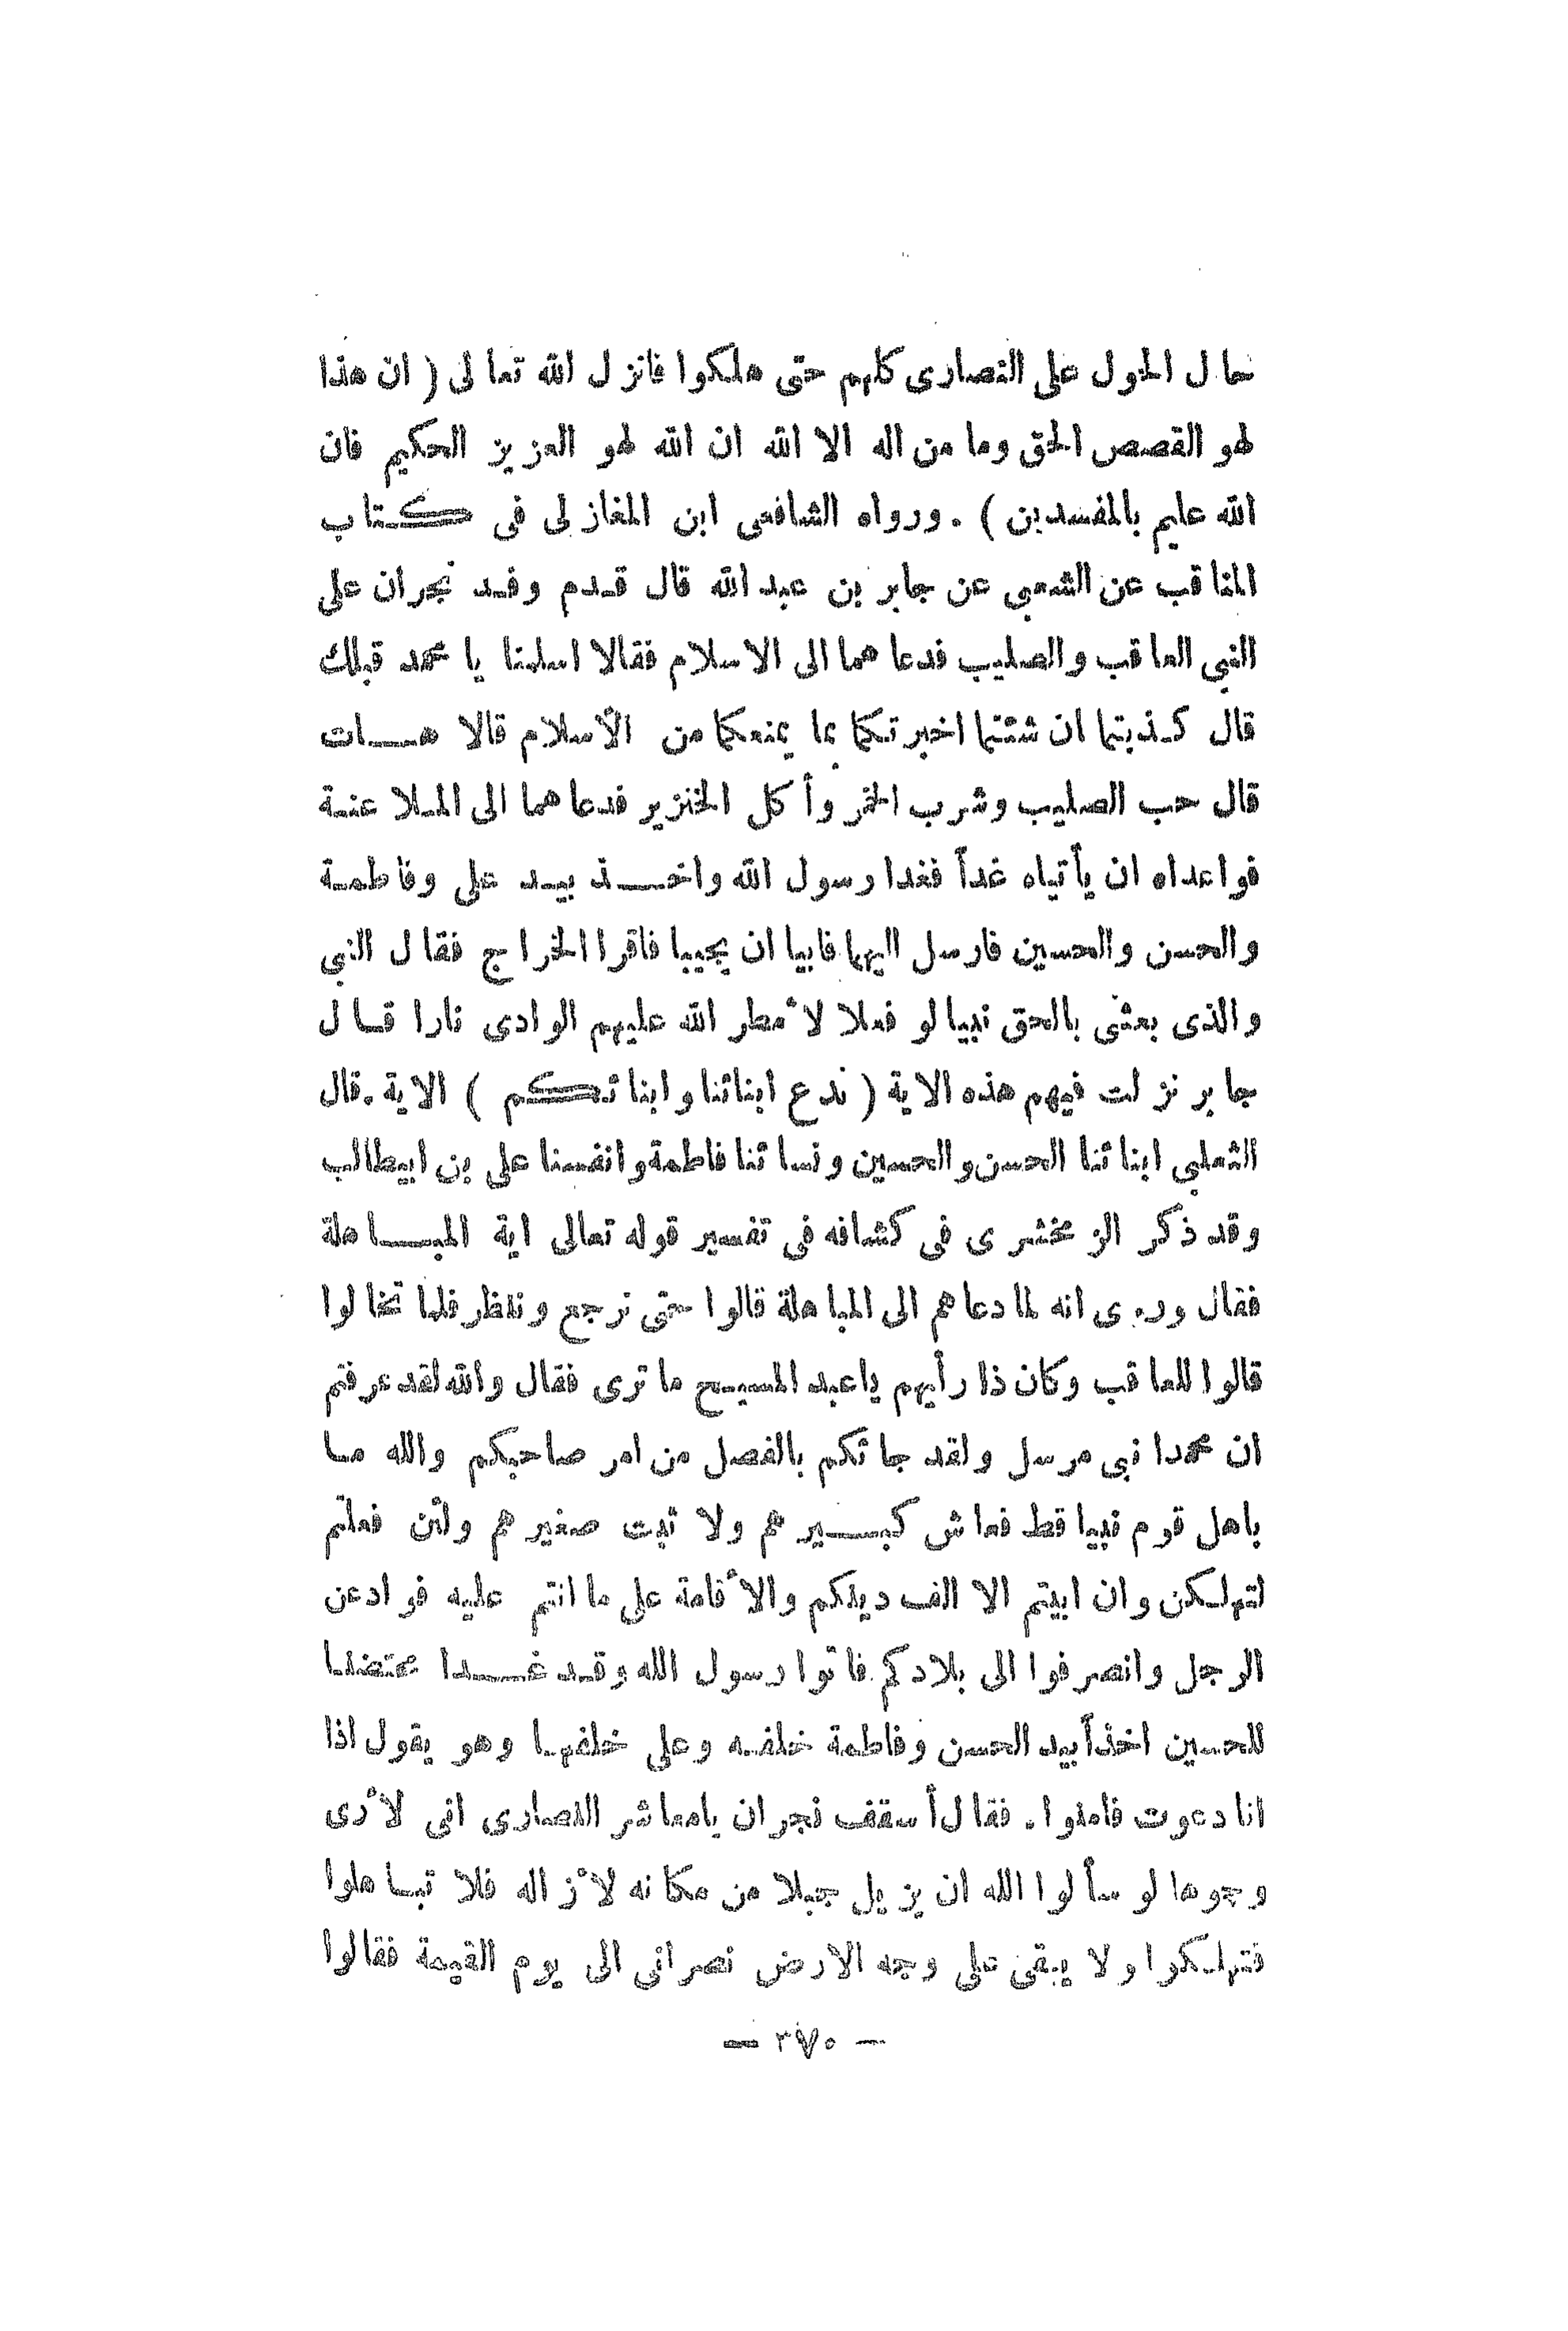 حال الحول على النصارى كلهم حتى هلكوا فانزل الله تعالى ( ان هذا
لهو القصص الحق وما من اله الا الله ان الله لهو العزيز الحكيم فان
الله عليم بالمفسدين ) . ورواه الشافعى ابن المغازلى فى كتاب
المناقب عن الشعبي عن جابر بن عبد الله قال قدم وفد نجران على
النبي العاقب والصليب فدعاهما الى الاسلام فقالا اسلمنا يا محمد قبلك
قال كذبتما ان شئتما اخبرتكما بما يمنعكما من الأسلام قالا هات
قال حب الصليب وشرب الخمر وأكل الخنزير فدعاهما الى الملاعنة
فواعداه ان يأتياه غداً فغدا رسول الله واخذ بيد على وفاطمة
والحسن والحسين فارسل اليهما فابيا ان يجيبا فاقرا الخراج فقال النبي
والذى بعثنى بالحق نبيا لو فعلا لأمطر الله عليهم الوادى نارا قال
جابر نزلت فيهم هذه الاية ( ندع ابنائنا وابنائكم ) الاية . قال
الثعلبي ابنائنا الحسن والحسين ونسائنا فاطمة وانفسنا على بن ابيطالب
وقد ذكر الزمخشرى فى كشافه فى تفسير قوله تعالى اية المباهلة
فقال وروى انه لما دعاهم الى المباهلة قالوا حتى نرجع وننظر فلما تخالوا
قالوا للعاقب وكان ذا رأيهم ياعبد المسيح ما ترى فقال والله لقد عرفتم
ان محمدا نبى مرسل ولقد جائكم بالفصل من امر صاحبكم والله ما
باهل قوم نبيا قط فعاش كبيرهم ولا نبت صغيرهم ولئن فعلتم
لتهلكن وان ابيتم الا الف دينكم والأقامة على ما انتم عليه فوادعن
الرجل وانصرفوا الى بلادكم فاتوا رسول الله وقد غدا محتضنا
للحسين اخذاً بيد الحسن وفاطمة خلفه وعلى خلفها وهو يقول اذا
انا دعوت فامنوا . فقال أسقف نجران يامعاشر النصارى انى لأرى
وجوها لو سألوا الله ان يزيل جبلا من مكانه لأزاله فلا تباهلوا
فتهلكوا ولا يبقى على وجه الارض نصرانى الى يوم القيمة فقالوا
— ٢٧٠ —